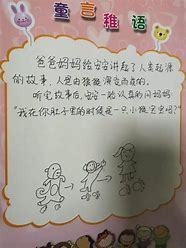 童言稚语
爸爸妈妈给安安讲起了人类起源
的故事，人是由猿猴演变而来的。
听完故事后，安安一脸认真的问妈妈：
“我在你肚子里的时候是一只小猴宝宝吗？”